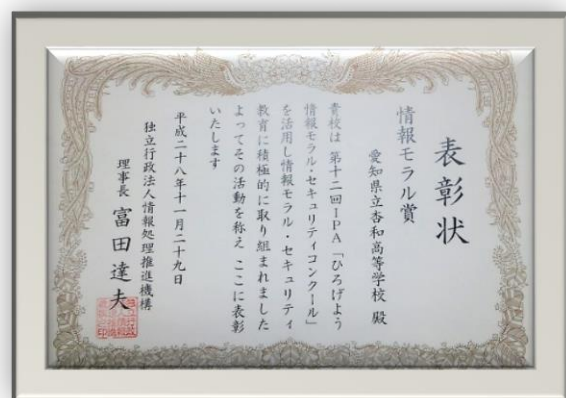 表彰状
情報モラル賞
愛知県立杏和高等学校 殿
貴校は 第十二回IPA「ひろげよう
情報モラル・セキュリティコンクール」
を活用し情報モラル・セキュリティ
教育に積極的に取り組まれました
よってその活動を称え ここに表彰
いたします
平成二十八年十一月二十九日
独立行政法人情報処理推進機構
理事長 富田達夫